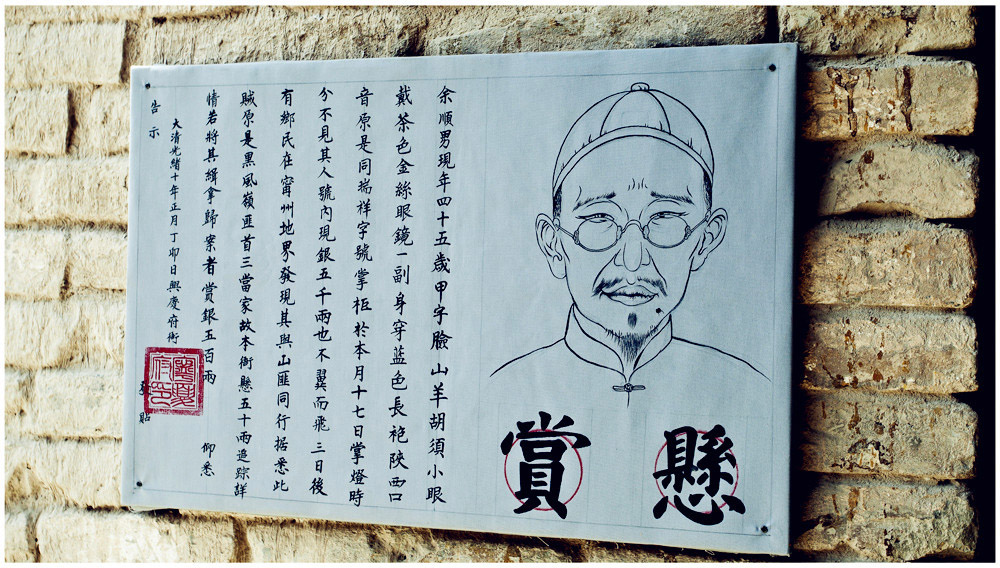 懸賞
余順男現年四十五歲甲字臉山羊胡須小眼
戴茶色金絲眼鏡一副身穿藍色長袍陝西口
音原是同揣祥字號掌柜於本月十七日掌燈時
分不見其人號內現銀五千兩也不翼而飛三日後
有鄉民在甯州地界發現其與山匪同行据悉此
賊原是黑風嶺匪首三當家故本衙懸五十兩追踪詳
情若將其緝拿歸案者賞銀五百兩 仰悉
大清光緒十年正月丁卯日興慶府衙
告示 貼